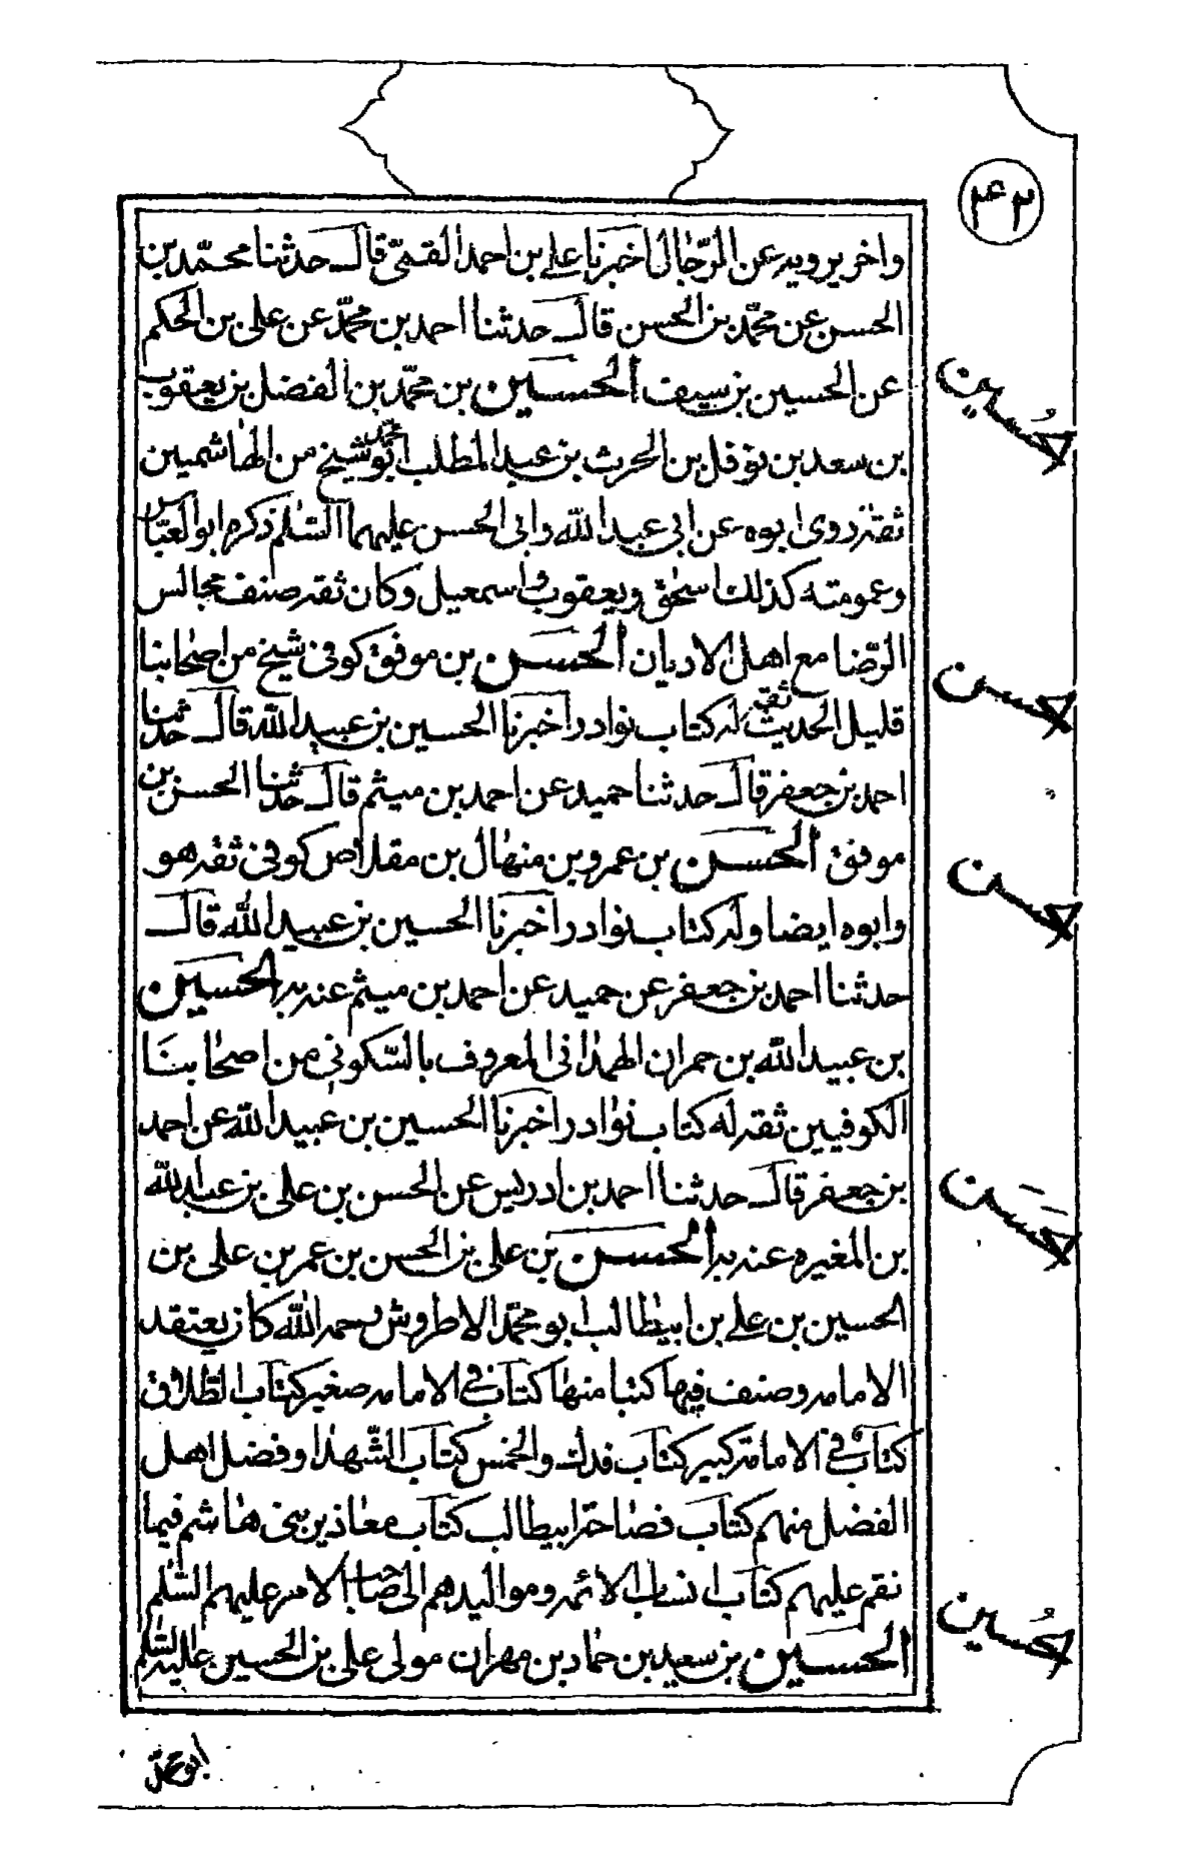 ٤٢
واخر يرويه عن الرّجال اخبرنا علي بن احمد القمّي قال حدثنا محمّد بن
الحسن عن محمّد بن الحسن قال حدثنا احمد بن محمّد عن علي بن الحكم
عن الحسين بن سيف الحسين بن محمّد بن الفضل بن يعقوب
حُسين
بن سعد بن نوفل بن الحرث بن عبد المطلب ابو محمّد شيخ من الهاشميين
ثقة روى ابوه عن ابي عبد الله وابي الحسن عليهما السّلم ذكره ابو العبّاس
وعمومته كذلك اسحق ويعقوب واسمعيل وكان ثقه صنف مجالس
الرّضا مع اهل الاديان الحسن بن موفق كوفي شيخ من اصحابنا
حسن
قليل الحديث ثقه له كتاب نوادر اخبرنا الحسين بن عبيد الله قال حدثنا
احمد بن جعفر قال حدثنا حميد عن احمد بن ميثم قال حدثنا الحسن بن
موفق الحسن بن عمرو بن منهال بن مقلاص كوفي ثقه هو
حسن
وابوه ايضا وله كتاب نوادر اخبرنا الحسين بن عبيد الله قال
حدثنا احمد بن جعفر عن حميد عن احمد بن ميثم عنه به الحسين
بن عبيد الله بن حمران الهمذاني المعروف بالسّكوني من اصحابنا
الكوفيين ثقه له كتاب نوادر اخبرنا الحسين بن عبيد الله عن احمد
بن جعفر قال حدثنا احمد بن ادريس عن الحسن بن علي بن عبد الله
حَسَن
بن المغيره عنه به الحسن بن علي بن الحسن بن عمر بن علي بن
الحسين بن علي بن ابيطالب ابو محمّد الاطروش رحمه الله كان يعتقد
الامامه وصنف فيها كتبا منها كتاب في الامامه صغير كتاب الطلاق
كتاب في الامامة كبير كتاب فدك والخمس كتاب الشّهدا وفضل اهل
الفضل منهم كتاب فصاحة ابيطالب كتاب معاذير بني هاشم فيما
نقم عليهم كتاب انساب الائمه ومواليدهم الى صاحب الامر عليهم السّلم
الحسين بن سعيد بن حماد بن مهران مولى علي بن الحسين عليه السّلم
حُسين
ابو محمّد